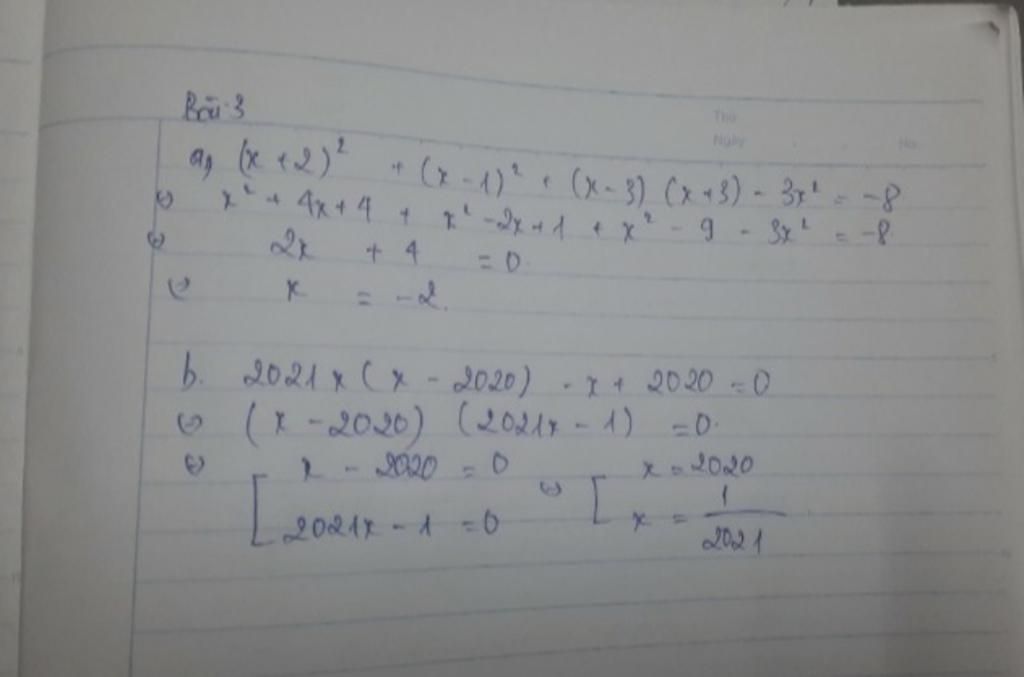 Bài 3
Thứ
Ngày No.
a, (x + 2)² + (x - 1)² + (x - 3) (x + 3) - 3x² = -8
⇔ x² + 4x + 4 + x² - 2x + 1 + x² - 9 - 3x² = -8
⇔ 2x + 4 = 0
⇔ x = -2.
b. 2021x (x - 2020) - x + 2020 = 0
⇔ (x - 2020) (2021x - 1) = 0.
⇔ [ x - 2020 = 0 ⇔ [ x = 2020
2021x - 1 = 0 x = 1/2021